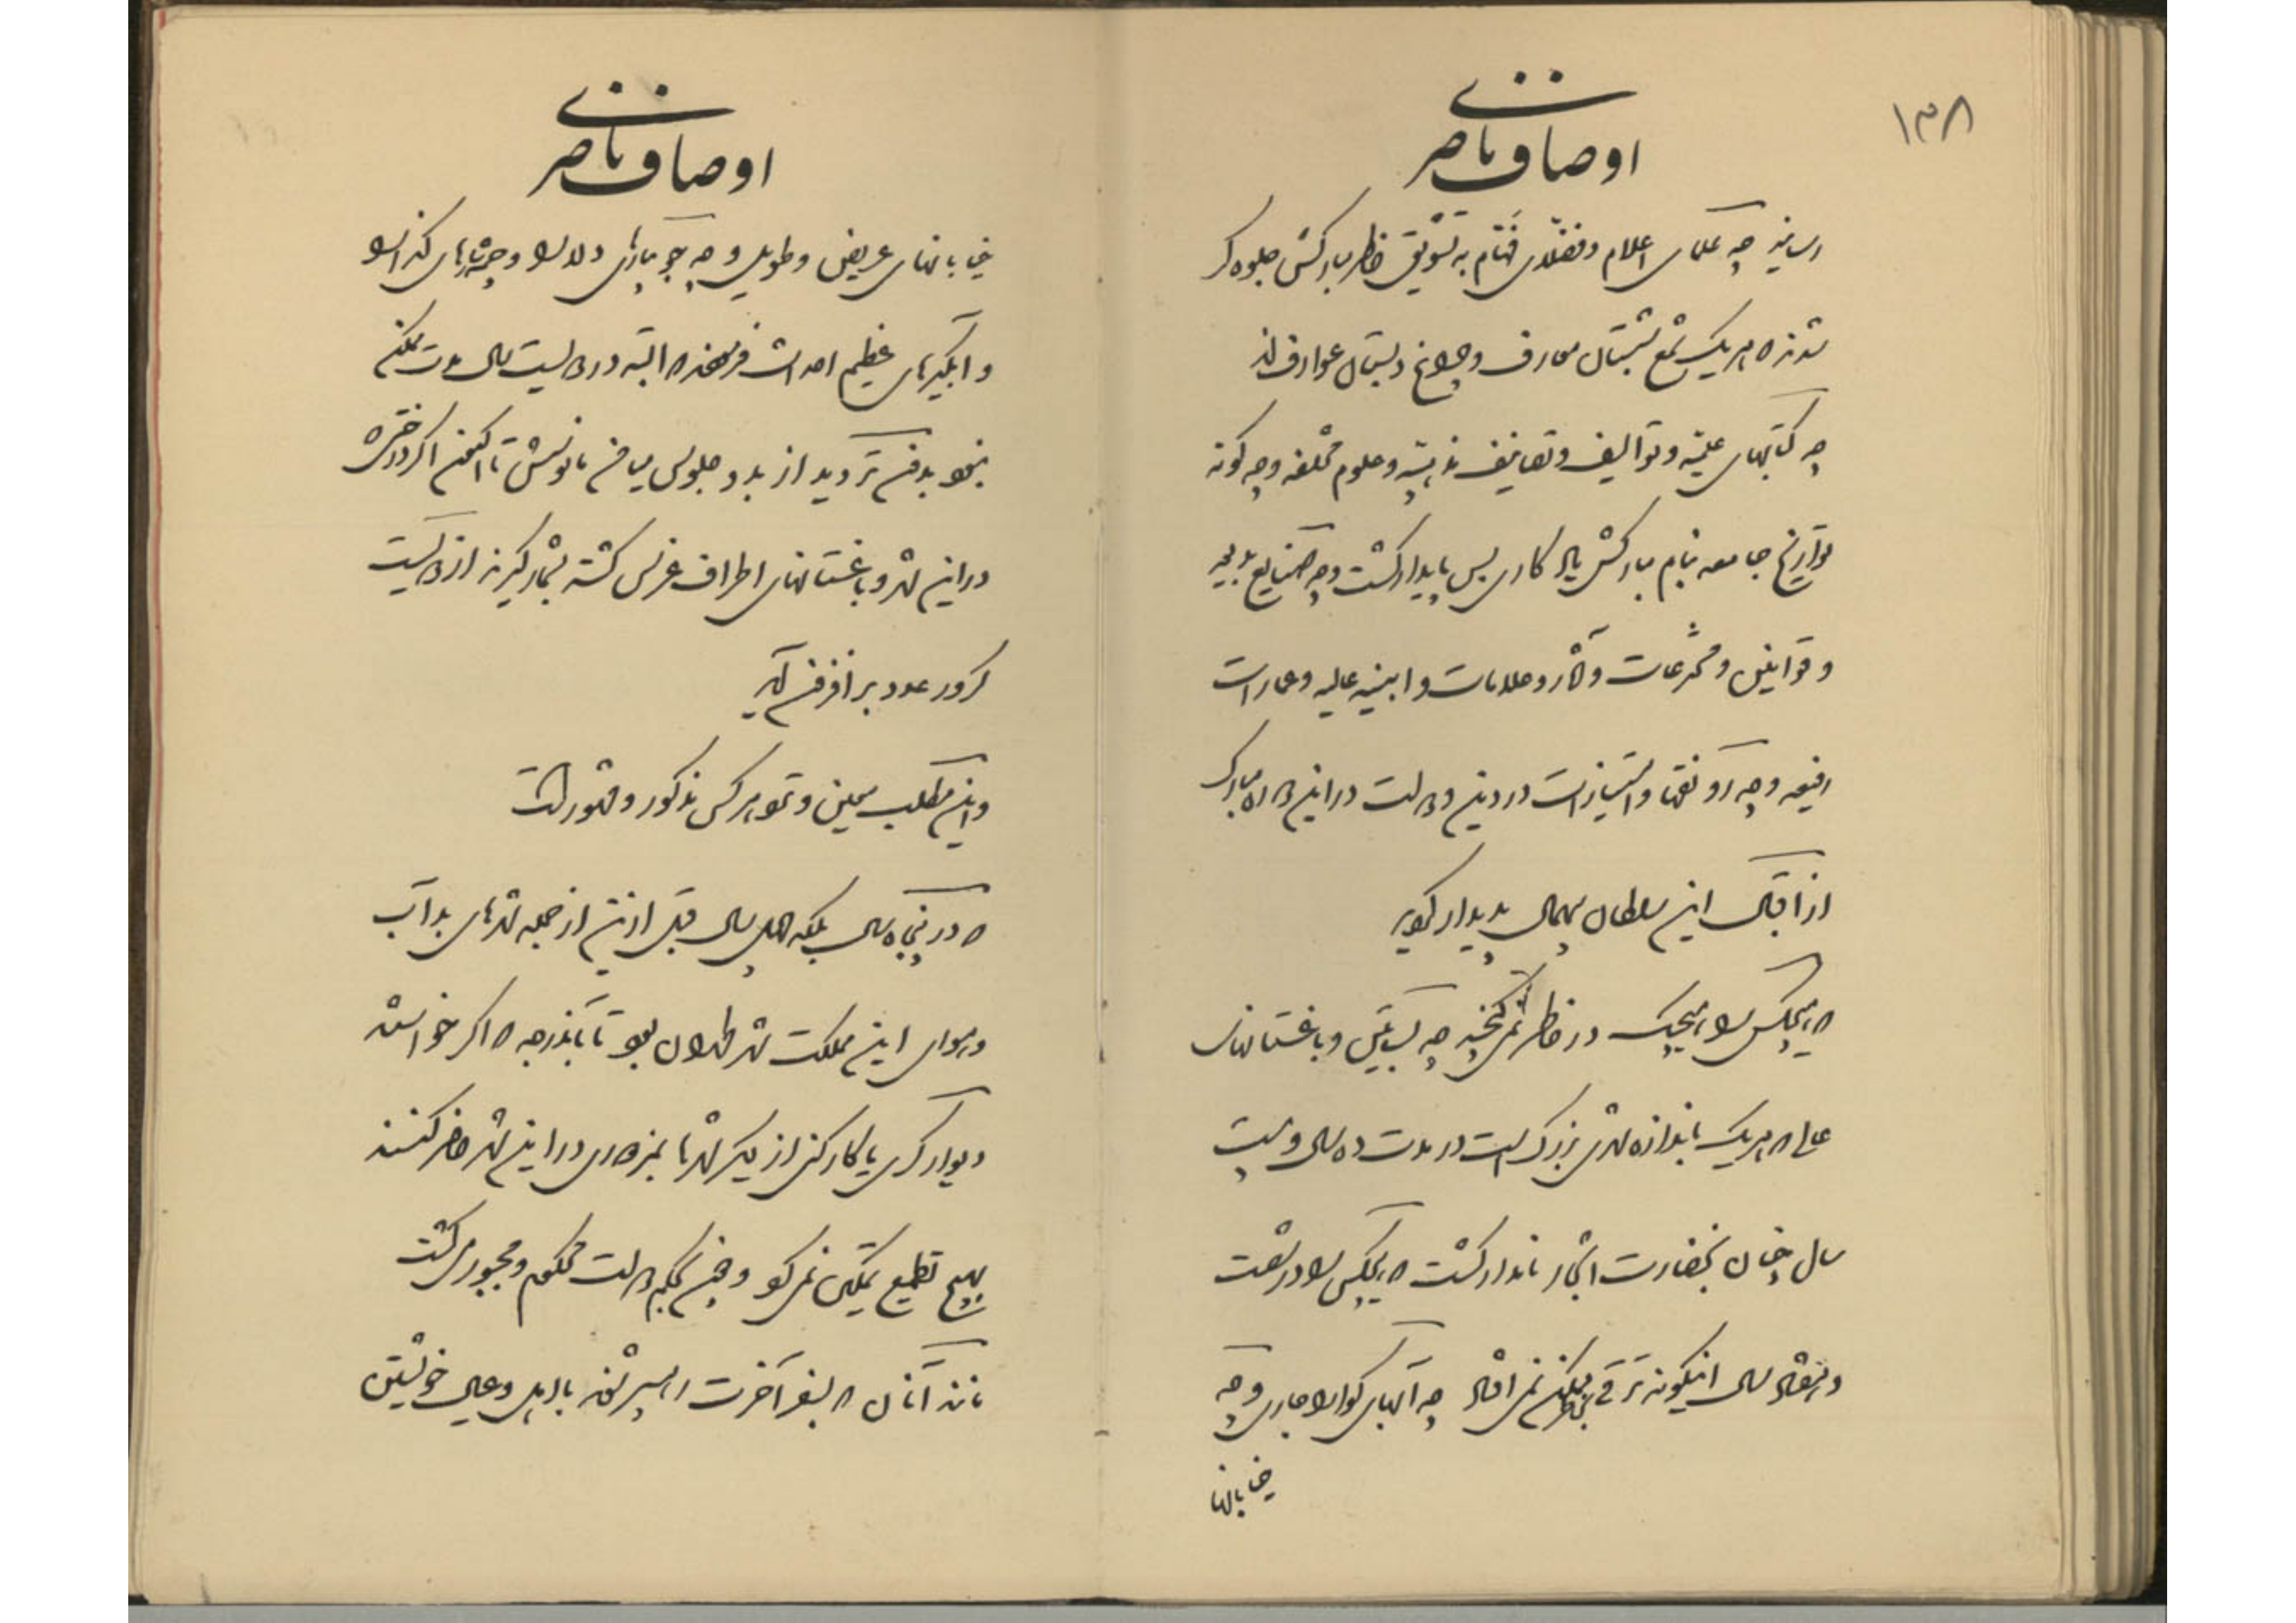 ۱۳۸
اوصاف ناصری
چه علمای اعلام و فضلای فخام به تشویق خاطر مبارکش جلوه گر
شدند که هر یک شمع شبستان معارف و چراغ دبستان عوارفند
چه کتابهای علمیه و توالیف و تصانیف مذهبیه و علوم مختلفه و چه گونه
تواریخ جامعه بنام مبارکش یادگاری بس پایدار گشت و چه صنایع بدیعه
و قوانین و مخترعات و آثار و علامات و ابنیه عالیه و عمارات
رفیعه و چه رونقها و امتیازات در دین و دولت در این دوره مبارک
از اقبال این سلطان بیهمال پدیدار گردید
که هیچکس را هیچیک در خاطر نمی گنجید چه بساتین و باغستانهای
عالی که هر یک باندازه شهری بزرگ است در مدت ده سال و بیست
سال چنان بنضارت اشجار نامدار گشت که هیچکس را در شصت
و هفتاد سال اینگونه ترقی نمی افتاد چه آبهای گوارا جاری و چه
خیابانها
اوصاف ناصری
خیابانهای عریض و طویل و چه جویبارهای دلارا و چشمه های
و آبگیرهای عظیم احداث فرمودند که البته در دویست سال مدت ممکن
نبود بدون تردید از بدو جلوس میامن مانوسش تا اکنون اگر درختی که
در این شهر و باغستانهای اطراف غرس گشته بشمار گیرند از دویست
کرور عدد بر افزون آید
و این مطلب مبین و نزد هر کس مذکور و مشهور است
که در پنجاه سال بلکه چهل سال قبل از این از جمله شهرهای بد آب
و هوای این مملکت شهر طهران بود تا بآندرجه که اگر خواستند
دیوارگری یا کارکنی از دیگر شهرها بمزدوری در این شهر حاضر کنند
بهیچ تطمیع تمکین نمی کرد و چون بحکم دولت محکوم و مجبور می گشت
مانند آنان که بسفر آخرت رهسپر شوند با اهل و عیال خویشتن